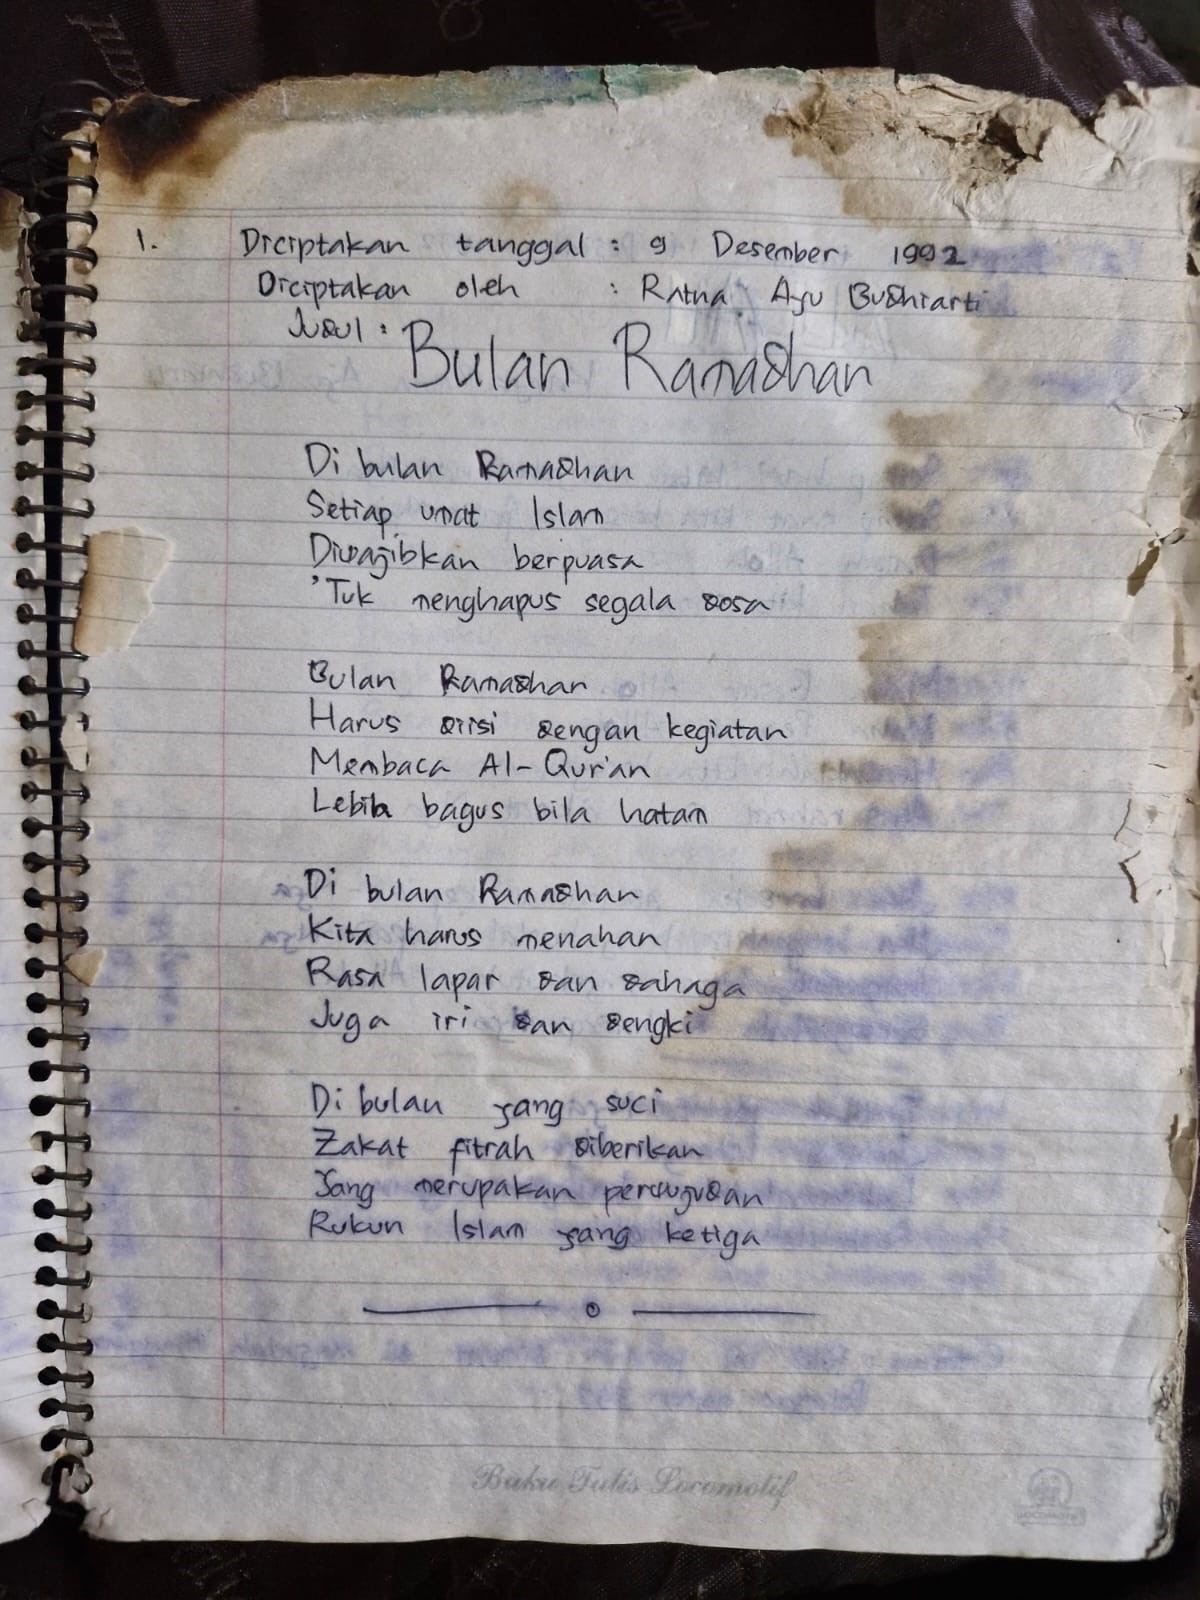 1. Diciptakan tanggal : 9 Desember 1992
Diciptakan oleh : Ratna Ayu Budhiarti
Judul : Bulan Ramadhan
Di bulan Ramadhan
Setiap umat Islam
Diwajibkan berpuasa
'Tuk menghapus segala dosa
Bulan Ramadhan
Harus diisi dengan kegiatan
Membaca Al-Qur'an
Lebih bagus bila hatam
Di bulan Ramadhan
Kita harus menahan
Rasa lapar dan dahaga
Juga iri dan dengki
Di bulan yang suci
Zakat fitrah diberikan
Yang merupakan perwujudan
Rukun Islam yang ketiga
Buku Tulis Locomotif
LOCOMOTIF